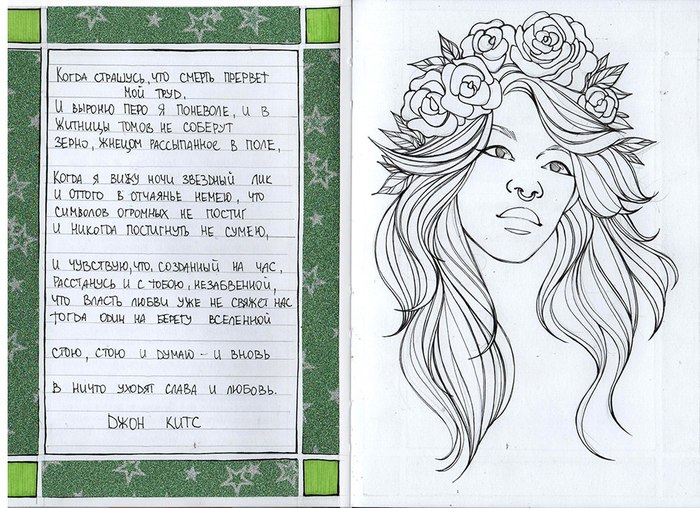 Когда страшусь, что смерть прервет
мой труд,
И выроню перо я поневоле, и в
житницы томов не соберут
зерно, жнецом рассыпанное в поле,
Когда я вижу ночи звездный лик
и оттого в отчаянье немею, что
символов огромных не постиг
и никогда постигнуть не сумею,
И чувствую, что, созданный на час,
расстанусь и с тобою, незабвенной,
что власть любви уже не свяжет нас
тогда один на берегу вселенной
стою, стою и думаю - и вновь
в ничто уходят слава и любовь.
Джон Китс